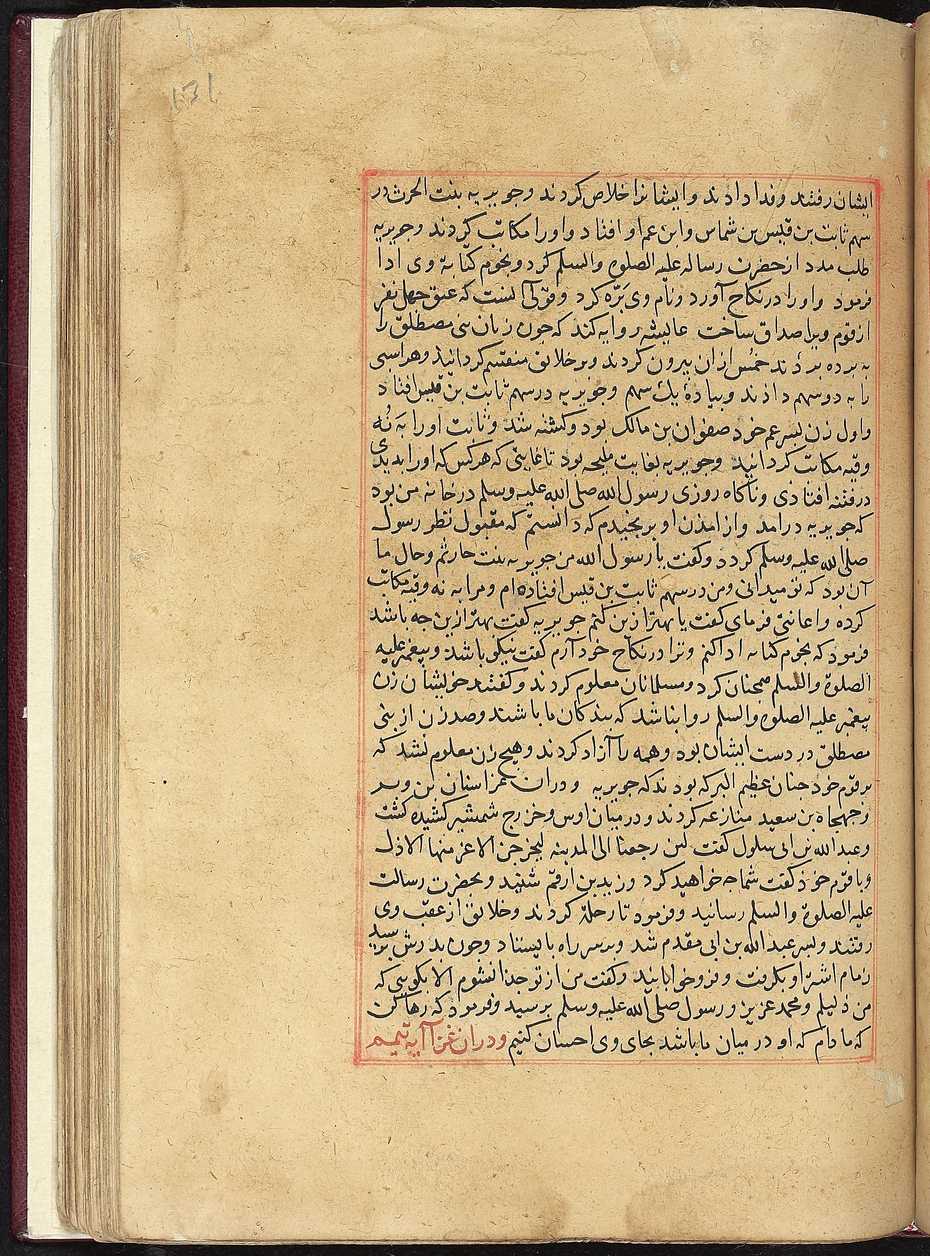 ۱۳۱
ایشان رفتند و فدا دادند و ایشانرا خلاص کردند و جویریه بنت الحرث در
سهم ثابت بن قیس بن شماس و ابن عم او افتاد و اورا مکاتب کردند و جویریه
طلب مدد از حضرت رساله علیه الصلوه والسلم کرد و نجوم کتابة وی ادا
فرمود و اورا در نکاح آورد و نام وی بَرّه کرد و قولی آنست که عتق چهل نفر
از قوم ویرا صداق ساخت عایشه روایه کند که چون زنان بنی مصطلق را
به برده بردند خمُس ازان بیرون کردند و بر خلائق منقسم کردانیند و هر اسبی
را به دو سهم دادند و پیادهٔ یک سهم و جویریه در سهم ثابت بن قیس افتاد
و اول زن پسر عم خود صفوان بن مالک بود و کشته شد و ثابت اورا به نُه
وقیه مکاتب کردانید و جویریه بغایت ملیحه بود تا غایتی که هر کس که اورا بدیدی
در فتنه افتادی و ناکاه روزی رسول الله صلی الله علیه وسلم در خانه من بود
که جویریه درامد و از امدن او برنجیدم که دانستم که مقبول نظر رسول
صلی الله علیه وسلم کردد و کفت یا رسول الله من جویریه بنت حارثم و حال ما
آن بود که تو میدانی و من در سهم ثابت بن قیس افتاده ام و مرا به نه وقیه مکاتب
کرده و اعانتی فرمای کفت یا بهتر ازین کنم جویریه کفت بهتر ازین چه باشد
فرمود که نجوم کتابه ادا کنم و ترا در نکاح خود آرم کفت نیکو باشد و پیغمبر علیه
الصلوة والسلم همچنان کرد و مسلمانان معلوم کردند و کفتند خویشان زن
پیغمبر علیه الصلوه والسلم روا نباشد که بندکان ما باشند و صد زن از بنی
مصطلق در دست ایشان بود و همه را آزاد کردند و هیچ زن معلوم نشد که
بر قوم خود چنان عظیم البرکه بودند که جویریه و دران غزا سنان بن وبر
و جهجاه بن سعید منازعه کردند و در میان اوس و خزرج شمشیر کشیده کشت
و عبد الله بن ابی سلول کفت لین رجعنا الی المدینه لیخرجن الاعز منها الاذل
و با قوم خود کفت شما چه خواهید کرد و زید بن ارقم شنید و بحضرت رسالت
علیه الصلوة والسلم رسانید و فرمود تا رحلة کردند و خلائق از عقب وی
رفتند و پسر عبد الله بن ابی مقدم شد و بر سر راه بایستاد و چون پدرش برسید
زمام اشتر او بکرفت و فرو خوابانید و کفت من از تو جدا نشوم الا بکویی که
من ذلیلم و محمد عزیز و رسول صلی الله علیه وسلم برسید و فرمود که رها کن
که مادام که او در میان ما باشد بجای وی احسان کنیم و دران غزا آیه تیمم